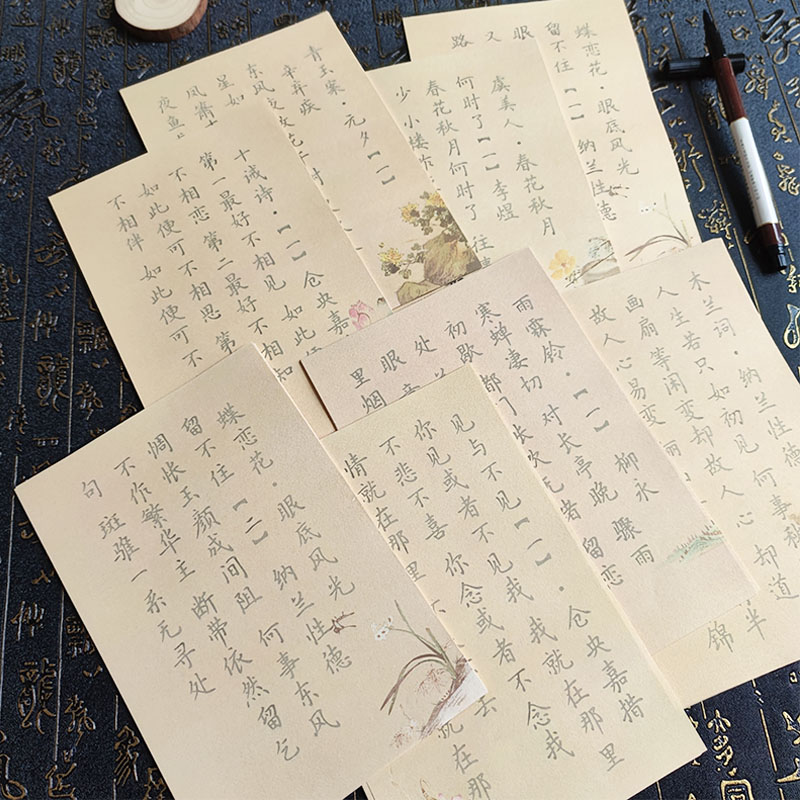 青玉案·元夕【一】
辛弃疾
东风夜放
星如
风箫
夜鱼
蝶恋花·眼底风光
留不住【一】 纳兰性德
眼
又
路
虞美人·春花秋月
何时了【一】李煜
春花秋月何时了 往
少 小楼
十诫诗·【一】仓央嘉
第一最好不相见 如此
不相恋 第二最好不相知
如此便可不相思 第
不相伴 如此便可不
雨霖铃·【一】 柳永
寒蝉凄切 对长亭晚 骤雨
初歇 都门帐饮无绪 留恋
处
眼
里烟
木兰词·纳兰性德
人生若只如初见 何事秋
画扇 等闲变却故人心 却道
故人心易变 骊 半
锦
蝶恋花·眼底风光
留不住【二】 纳兰性德
惆怅玉颜成间阻 何事东风
不作繁华主 断带依然留乞
句 斑骓一系无寻处
见与不见【一】·仓央嘉措
你见或者不见我 我就在那里
不悲不喜 你念或者不念我
情就在那里 去
就在那